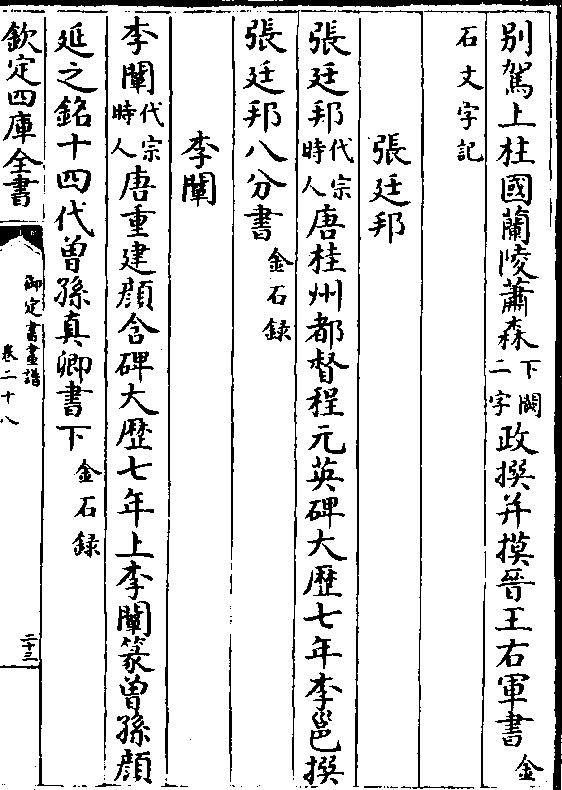 别駕上柱國蘭陵蕭森下闕二字政撰并摸晉王右軍書金
石文字記
張廷邦
張廷邦代宗時人唐桂州都督程元英碑大歴七年李邕撰
張廷邦八分書金石録
李闡
李闡代宗時人唐重建顔含碑大歴七年上李闡篆曽孫顔
延之銘十四代曽孫真卿書下金石録
欽定四庫全書
御定書畫譜
卷二十八
二十三